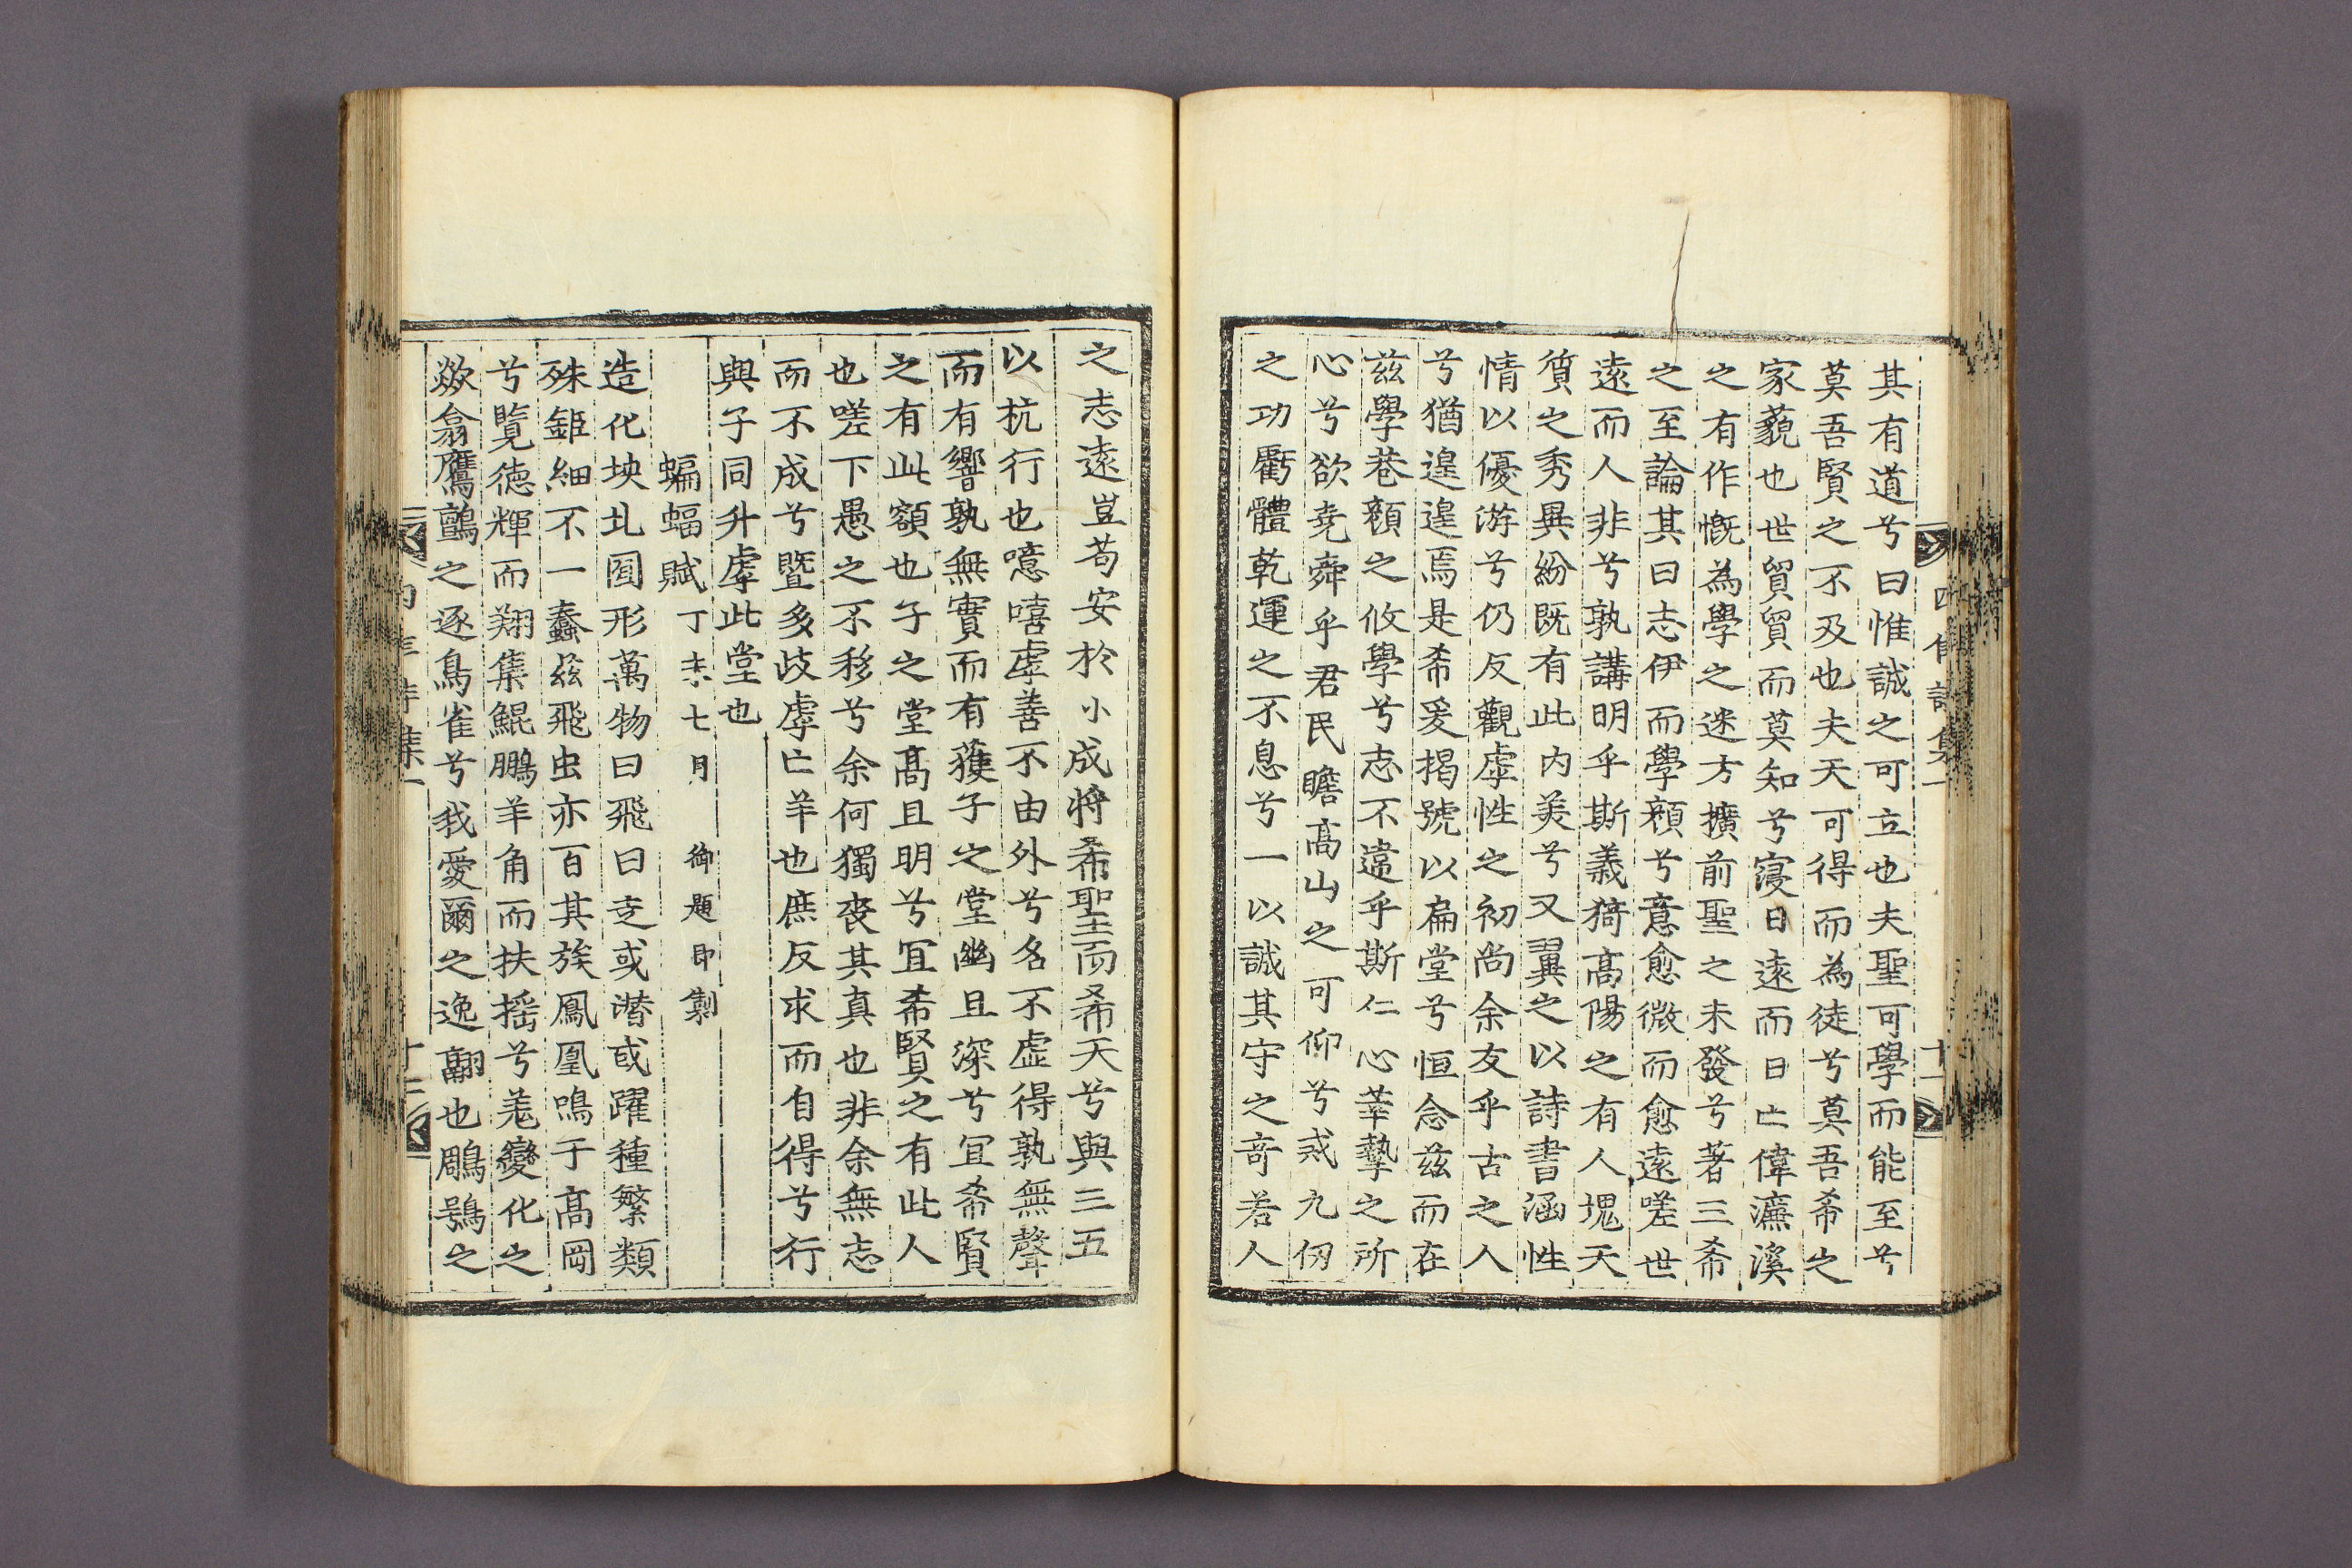 其有道兮曰惟誠之可立也夫聖可學而能至兮
莫吾賢之不及也夫天可得而為徒兮莫吾希之
家藐也世貿貿而莫知兮寖日遠而日亡偉濂溪
之有作慨為學之迷方擴前聖之未發兮著三希
之至論其曰志伊而學顔兮意愈微而愈遠嗟世
遠而人非兮孰講明乎斯義猗高陽之有人塊天
質之秀異紛既有此內美兮又翼之以詩書涵性
情以優游兮仍反觀虛性之初尚余友乎古之人
兮猶遑遑焉是希爰揭號以扁堂兮恒念茲而在
茲學巷顔之攸學兮志不違乎斯仁心莘摯之所
心兮欲堯舜乎君民瞻高山之可仰兮惑九仞
之功虧體乾運之不息兮一以誠其守之奇若人
之志遠豈苟安於小成將希聖而希天兮與三五
以抗行也噫嘻虖善不由外兮名不虛得孰無聲
而有響孰無實而有蒦子之堂幽且深兮冝希賢
之有此額也子之堂高且明兮冝希賢之有此人
也嗟下愚之不移兮余何獨喪其真也非余無志
而不成兮曁多歧虖亡羊也庶反求而自得兮行
與子同升虖此堂也
蝙蝠賦丁未七月 御題卽製
造化坱圠囿形萬物曰飛曰走或潛或躍種繁類
殊鉅細不一蠢茲飛虫亦百其族鳳凰鳴于高岡
兮覽德輝而翔集鯤鵬羊角而扶搖兮羌變化之
欻翕鷹鸇之逐鳥雀兮我愛爾之逸翮也鵰鶚之